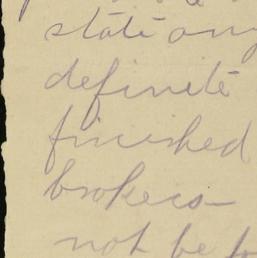 state any
definite
finished
brokers—
not be